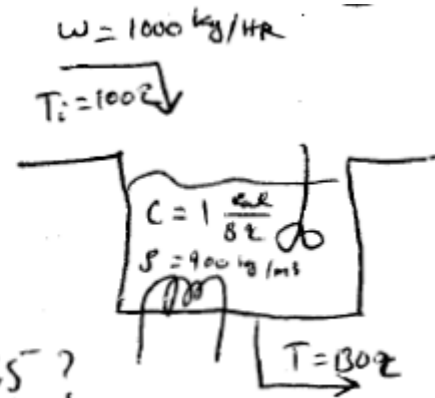 W = 1000 kg/HR
Ti = 100°C
C = 1 cal/g°C
ρ = 900 kg/m3
5 ?
T = 130°C